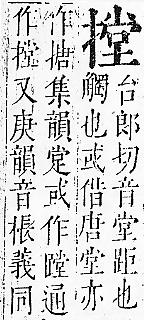 摚
台郎切音堂距也
觸也或借唐堂亦
作搪集韻㝎或作通
作樘又庚韻音棖義同